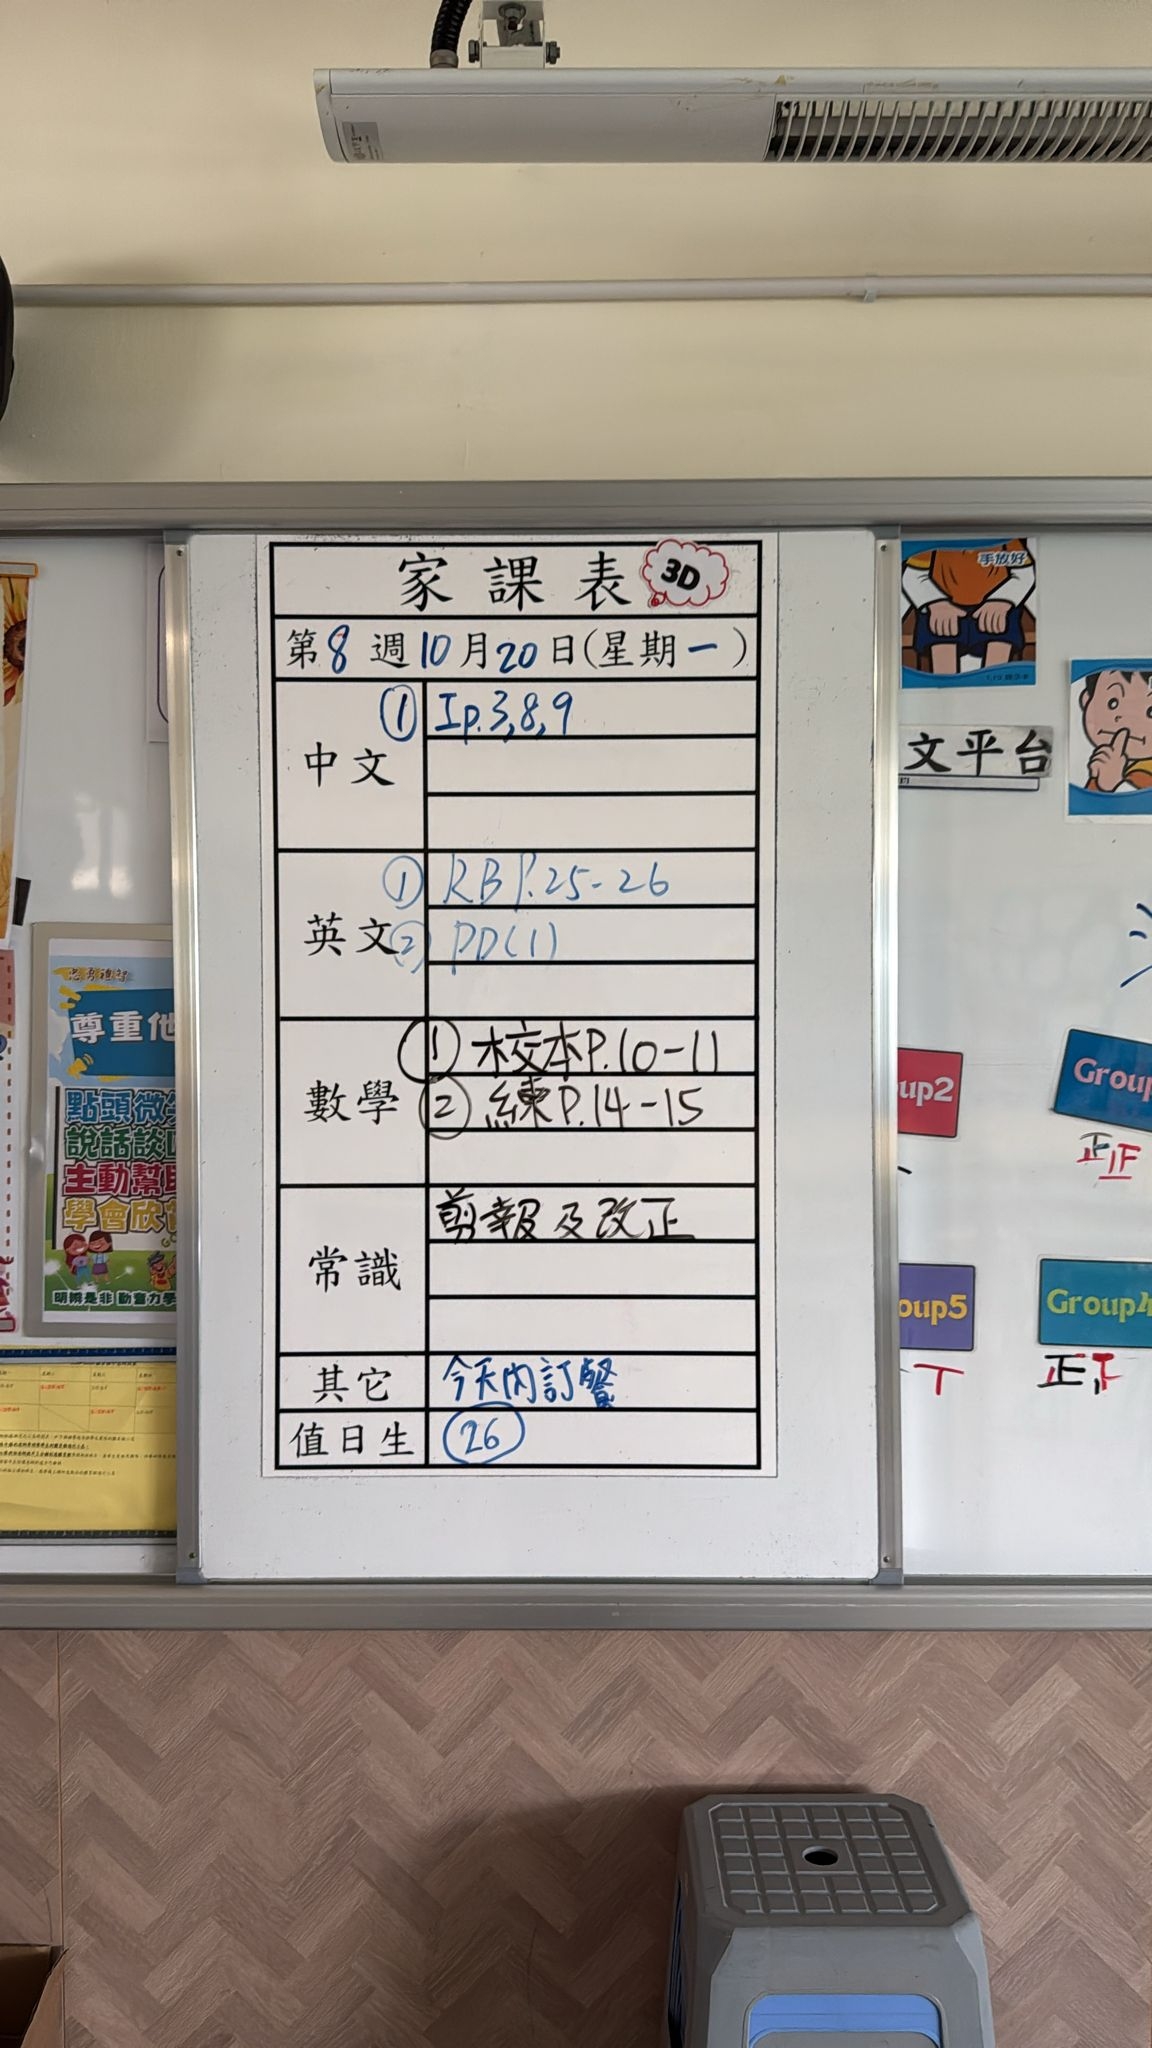 家課表 3D
第8週10月20日(星期一)
中文
① Ip.3,8,9
英文
① RB P.25-26
② PD(1)
數學
① 校本P.10-11
② 練P.14-15
常識
剪報及改正
其它
今天內訂餐
值日生
26
手放好
文平台
尊重他
點頭微笑
說話談
主動幫助
學會欣賞
明辨是非 勤奮力學
up2
Group
正正
oup5
Group4
正